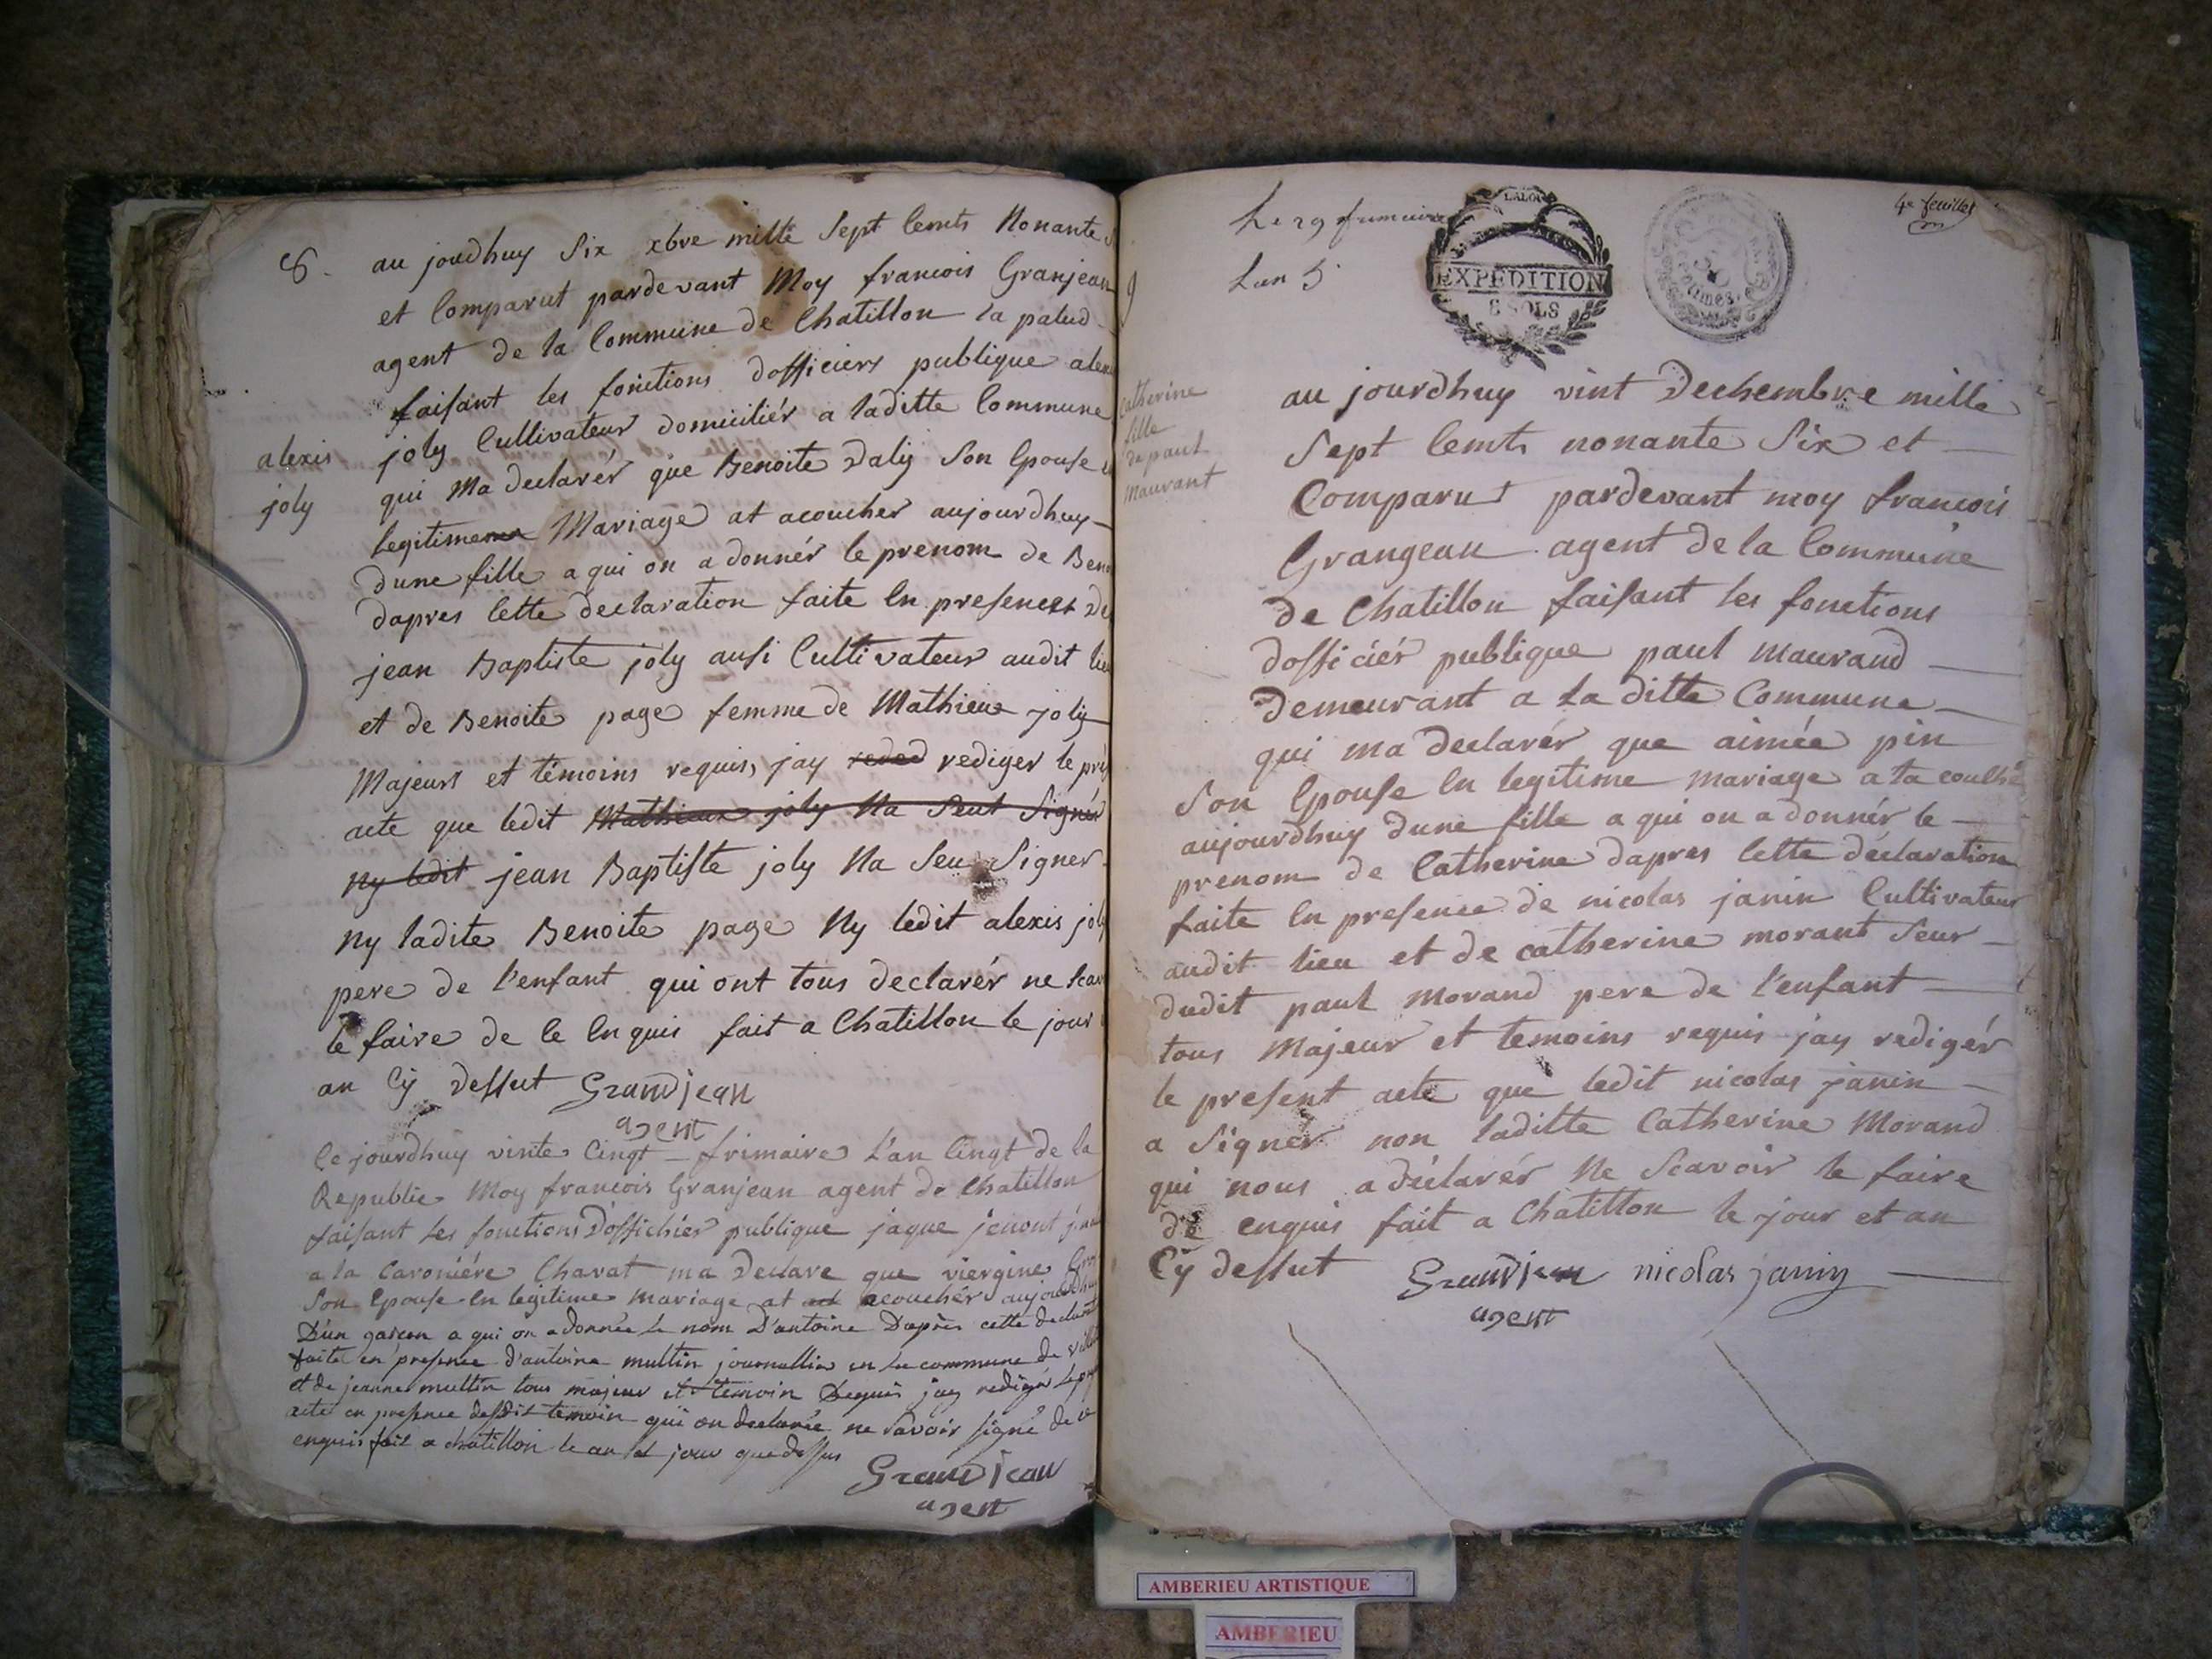 8. au jourdhuy Six xbre mille Sept Cents Nonante
et Comparut pardevant Moy francois Granjean
agent de la Commune de Chatillon la palud
faisant les fonctions dofficiers publique alexis
alexis joly
joly Cultivateur domiciliér a laditte Commune
qui Ma declarér que Benoite Daly Son Epouse
legitime Mariage at acoucher aujourdhuy
dune fille a qui on a donnér le prenom de Beno
dapres Cette declaration faite En presences De
jean Baptiste joly ausi Cultivateur audit lieu
et de Benoite page femme de Mathieux joly
Majeurs et témoins requis, jay reded rediger le pre
acte que ledit Mathieux joly Na Seut Signér
Ny ledit jean Baptiste joly Na Seu Signer
Ny ladite Benoite page Ny ledit alexis joly
pere de l'enfant qui ont tous declarér ne Scav
le faire de Ce Enquis fait a Chatillon le jour
an Cy dessut Grandjean
agent
Ce jourdhuy vinte Cingt frimaire L'an Cingt de la
Republic Moy francois Granjean agent de Chatillon
faisant les fonctions D'offichiér publique jaque jenont
a la Caroniére Chavat ma Declare que viergine
Son Epouse En legitime Mariage at acouchér aujourdhuy
D'un garcon a qui on a donnée le nom D'antoine D'après cette declarat
faite en presence d'antoine multin journallier en la commune de
et de jeanne multin tous majeur et temoin Requis jay redigé le
acte en presence desdit temoin qui on declarée ne savoir signé de ce
enquis fait a chatillon le an et jour que dessus
Grandjean
agent
Le 29 frimaire
Lan 5
LA LOI
EXPÉDITION
8 SOLS
4e feuillet
9
Catherine
fille
de paul
Mauvant
au jourdhuy vint Dechembre mille
Sept Cents nonante Six et
Comparut pardevant moy francois
Grangeau agent de la Commune
de Chatillon faisant les fonctions
dofficiér publique paul maurand
Demeurant a la ditte Commune
qui ma declarér que aimée pin
Son Epouse En legitime mariage a la couché
aujourdhuy dune fille a qui on a donnér le
prenom de Catherine dapres Cette déclaration
faite En presence de nicolas janin Cultivateur
audit lieu et de catherine morant Seur
dudit paul Morand pere de l'enfant
tous Majeur et temoins requis jay redigér
le present acte que ledit nicolas janin
a Signér non laditte Catherine Morand
qui nous a déclarér Ne Scavoir le faire
de enquis fait a Chatillon le jour et an
Cy dessut Grandjean nicolas janin
agent
AMBERIEU ARTISTIQUE
AMBERIEU